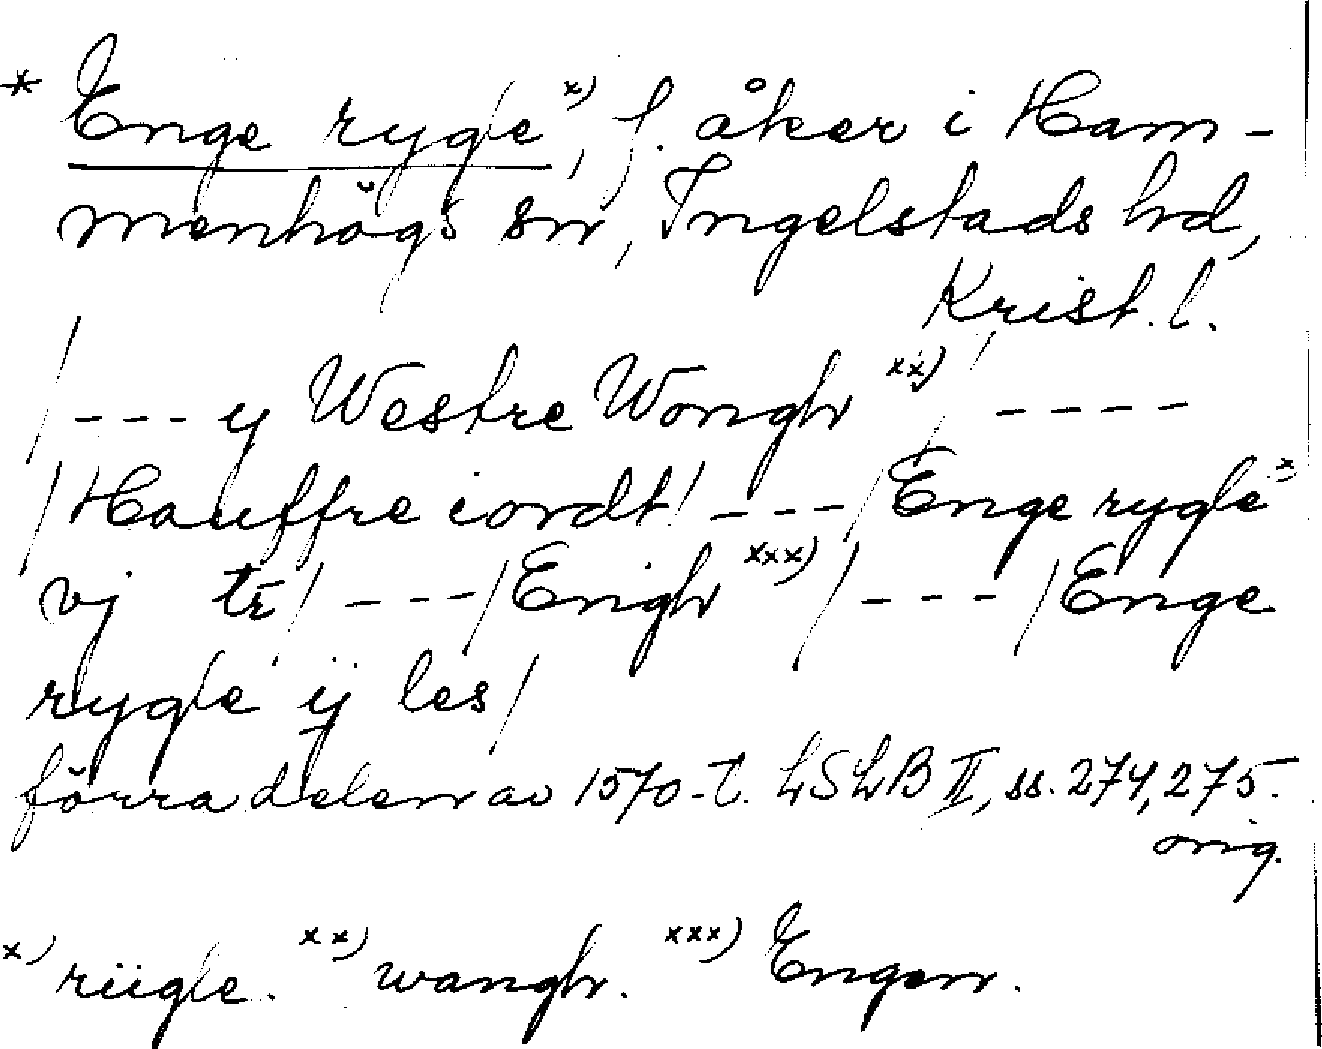 * Enge rygle x), f. åker i Ham-
menhögs sn, Ingelstads hd,
Krist. l.
/--- y Westre Wongh xx)/ ----
/Hauffre iordt/ ---/Enge rygle x)
vj tr̄/ ---/Engh xxx)/ ---/Enge
rygle ij les/
förra delen av 1570-t. LSLB II, ss. 274, 275.
orig.
x) riigle. xx) wangh. xxx) Engen.